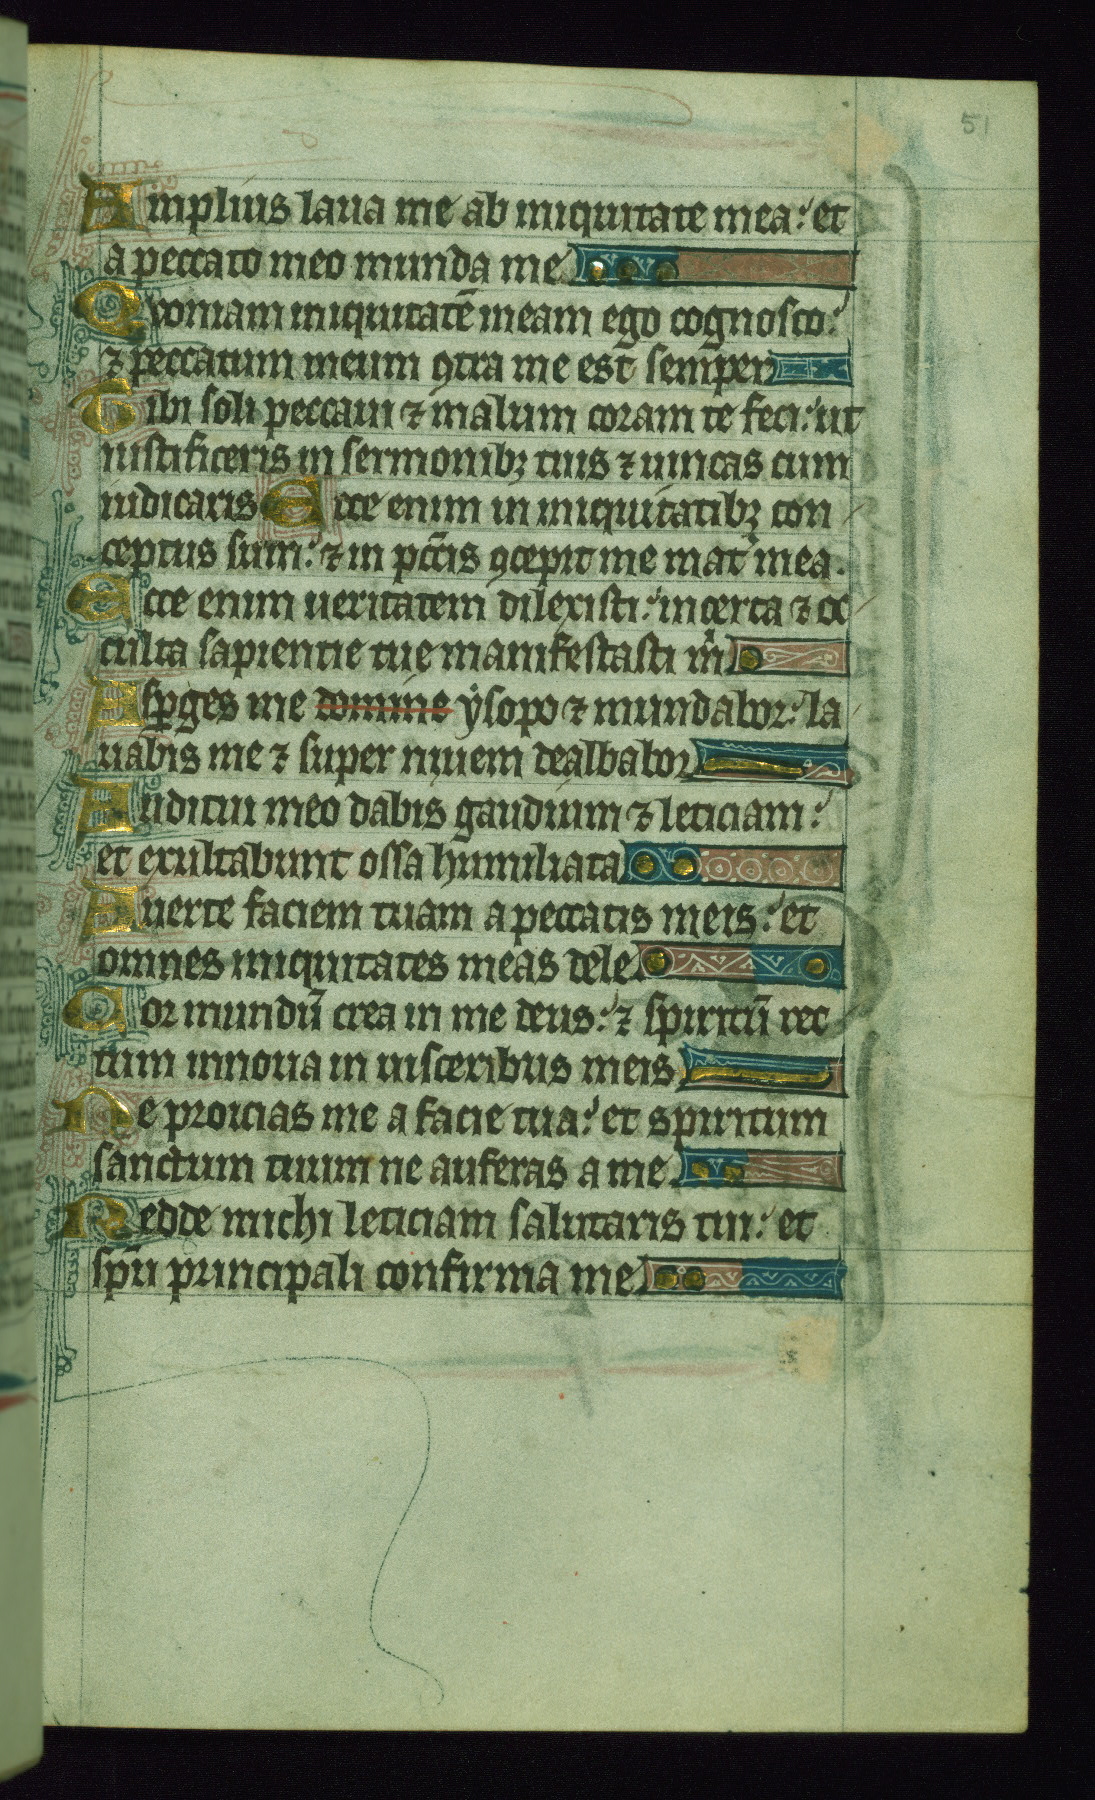 51
Amplius laua me ab iniquitate mea: et
a peccato meo munda me
Quoniam iniquitatē meam ego cognosco:
⁊ peccatum meum ꝯtra me est semper
Tibi soli peccaui ⁊ malum coram te feci: ut
iustificeris in sermonibꝫ tuis ⁊ uincas cum
iudicaris Ecce enim in iniquitatibꝫ con
ceptus sum: ⁊ in pctīs ꝯcepit me mat͛ mea.
Ecce enim ueritatem dilexisti: incerta ⁊ oc
culta sapientie tue manifestasti m̍
Asꝑges me domine ysopo ⁊ mundabor: la
uabis me ⁊ super niuem dealbabor
Auditui meo dabis gaudium ⁊ leticiam:
et exultabunt ossa humiliata
Auerte faciem tuam a peccatis meis: et
omnes iniquitates meas dele
Cor mundū crea in me deus: ⁊ spiritū rec
tum innoua in uisceribus meis
Ne proicias me a facie tua: et spiritum
sanctum tuum ne auferas a me
Redde michi leticiam salutaris tui: et
spū principali confirma me